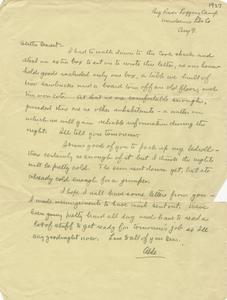 1927
Big River Logging Camp
Mendocino Co.
Aug 9
I had to walk down to the cook shack and
steal an extra box to set on to write this letter, as our house
hold goods included only one box, a table we built of
two sawbucks and a board torn off an old floor, and
iron cots. At last we are comfortable enough,
provided there are no other inhabitants - a matter on
which we will gain reliable information during the
night. I'll tell you tomorrow.
good of you to pack up my bedroll -
there certainly is enough of it but I think the nights
will be pretty cold. The sun went down yet, but its
already cold enough for a jumper.
I hope I will have some letters from you -
I made arrangements to have mail sent out. We've
been going pretty hard all day and have to read a
lot of stuff to get ready for tomorrow's job so I'll
say goodnight now. Love to all of you